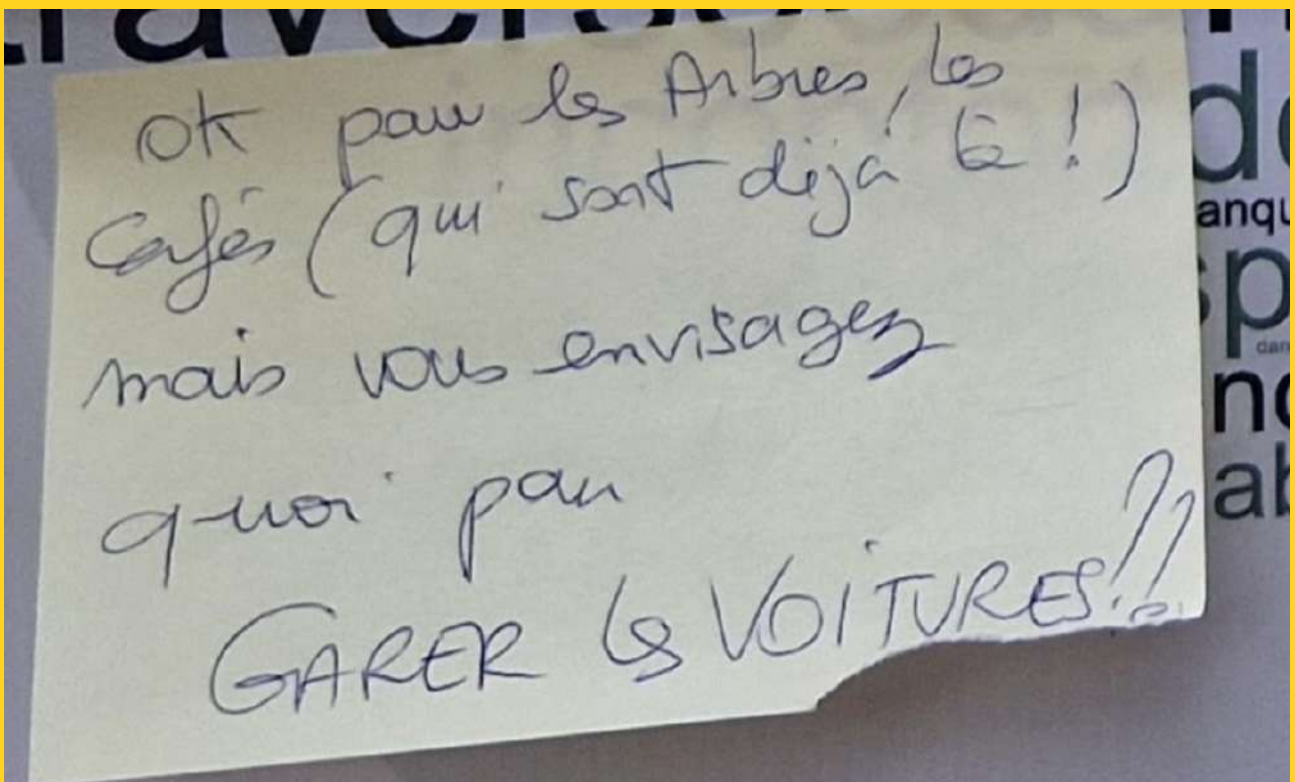 OK pour les Arbres, les
Cafés (qui sont déjà là !)
mais vous envisagez
quoi pour
GARER les VOITURES!!?
anqu